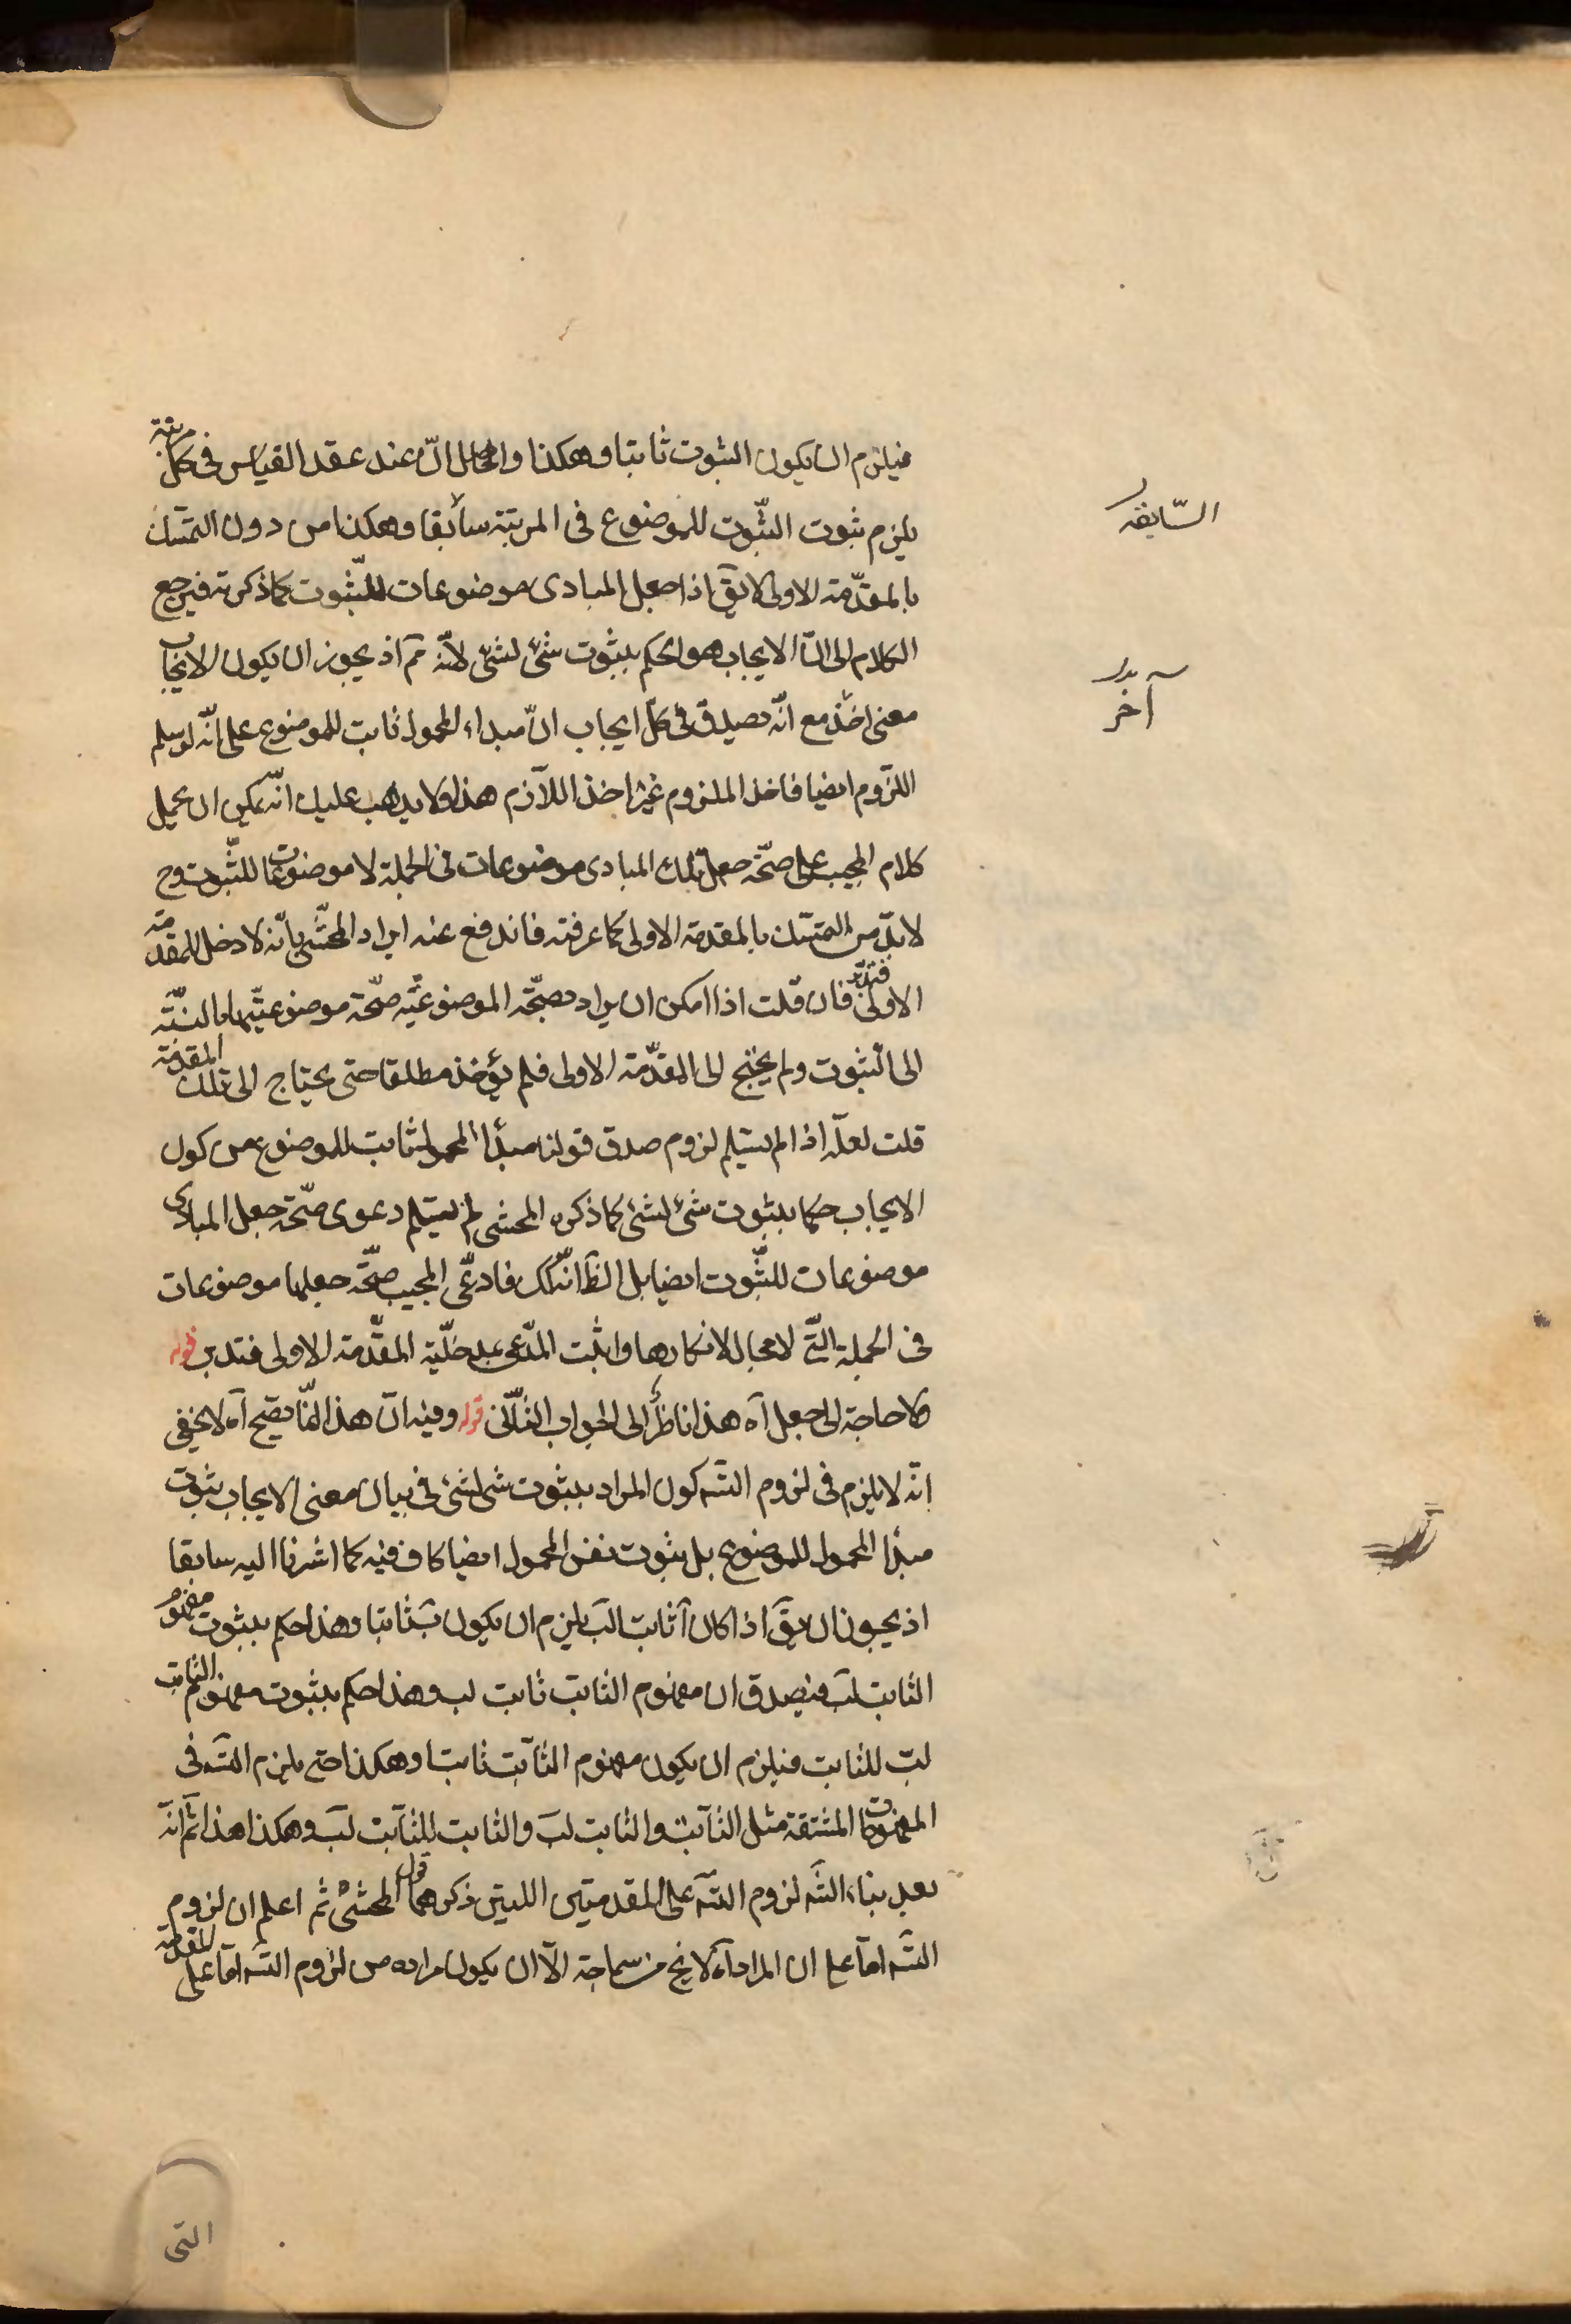 فيلزم ان يكون الثبوت ثابتا وهكذا والحاصل انّ عند عقد القياس فى كلّ مرتبة
يلزم ثبوت الثّبوت للموضوع فى المرتبة سابقا وهكذا من دون التمسّك
السّابقه
بالمقدّمة الاولى لا يقَ اذا جعل المبادى موضوعات للثّبوت كما ذكرته فيرجع
الكلام الى انّ الايجاب هو الحكم بثبوت شئ لشئ لأنّه مَم اذ يجوز ان يكون الايجاب
آخر بدل
معنى اخذ مع انّه يصدق فى كلّ ايجاب انّ مبداء المحمول ثابت للموضوع على انّه لو سلم
اللزوم ايضا فاخذ الملزوم غير اخذ اللازم هذا ولا يذهب عليك انّه يمكن ان يحمل
كلام المجيب على صحّة جعل تلك المبادى موضوعات فى الجملة لا موضوعات للثّبوت وح
لا بدّ من التمسّك بالمقدمة الاولى كما عرفته فاندفع عنه ايراد المحشّى بانّه لا دخل للمقدمة
الاولى فتدبّر فان قلت اذا امكن ان يراد بصحّة الموضوعيّة صحّة موضوعيّتها بالنسبة
الى الثبوت ولم يحتج الى المقدّمة الاولى فلم يؤخذ مطلقا حتى يحتاج الى تلك المقدمة
قلت لعلّه اذا لم يسلم لزوم صدق قولنا مبدأ المحمول ثابت للموضوع من كون
الايجاب حكما بثبوت شئ لشئ كما ذكره المحشى لم يسلم دعوى صحّة جعل المبادى
موضوعات للثّبوت ايضا بل الظَ انّه كك فادعّى المجيب صحّة جعلها موضوعات
فى الجملة الّتى لا مجال لانكارها واثبت المدّعى بمدخليّة المقدّمة الاولى فتدبر قوله
فلا حاجة الى جعل آه هذا ناظر الى الجواب الثّانى قوله وفيه انّ هذا انّما يصح آه لا يخفى
انّه لا يلزم فى لزوم التسَه كون المراد بثبوت شئ لشئ فى بيان معنى الايجاب ثبوت
مبدأ المحمول للموضوع بل ثبوت نفس المحمول ايضا كاف فيه كما اشرنا اليه سابقا
اذ يجوز ان يقَ اذا كان آ ثابت لبَ يلزم ان يكون بَ ثابتا وهذا حكم بثبوت مفهوم
الثابت لبَ فيصدق ان مفهوم الثابت ثابت لب وهذا حكم بثبوت مفهوم الثابت
لبَ للثابت فيلزم ان يكون مفهوم الثابت ثابتا وهكذا حتى يلزم التسَه فى
المفهومات المشتقة مثل الثابت والثابت لبَ والثابت للثابت لبَ وهكذا هذا ثم انّه
بعد بناء لزوم التسَه على المقدمتين اللتين ذكرهما قول المحشى ثم اعلم ان لزوم
التسَه امّا على ان المراد آه لا يخ من سماجة الّا ان يكون مراده من لزوم التسَه امّا على المقدمة
التى